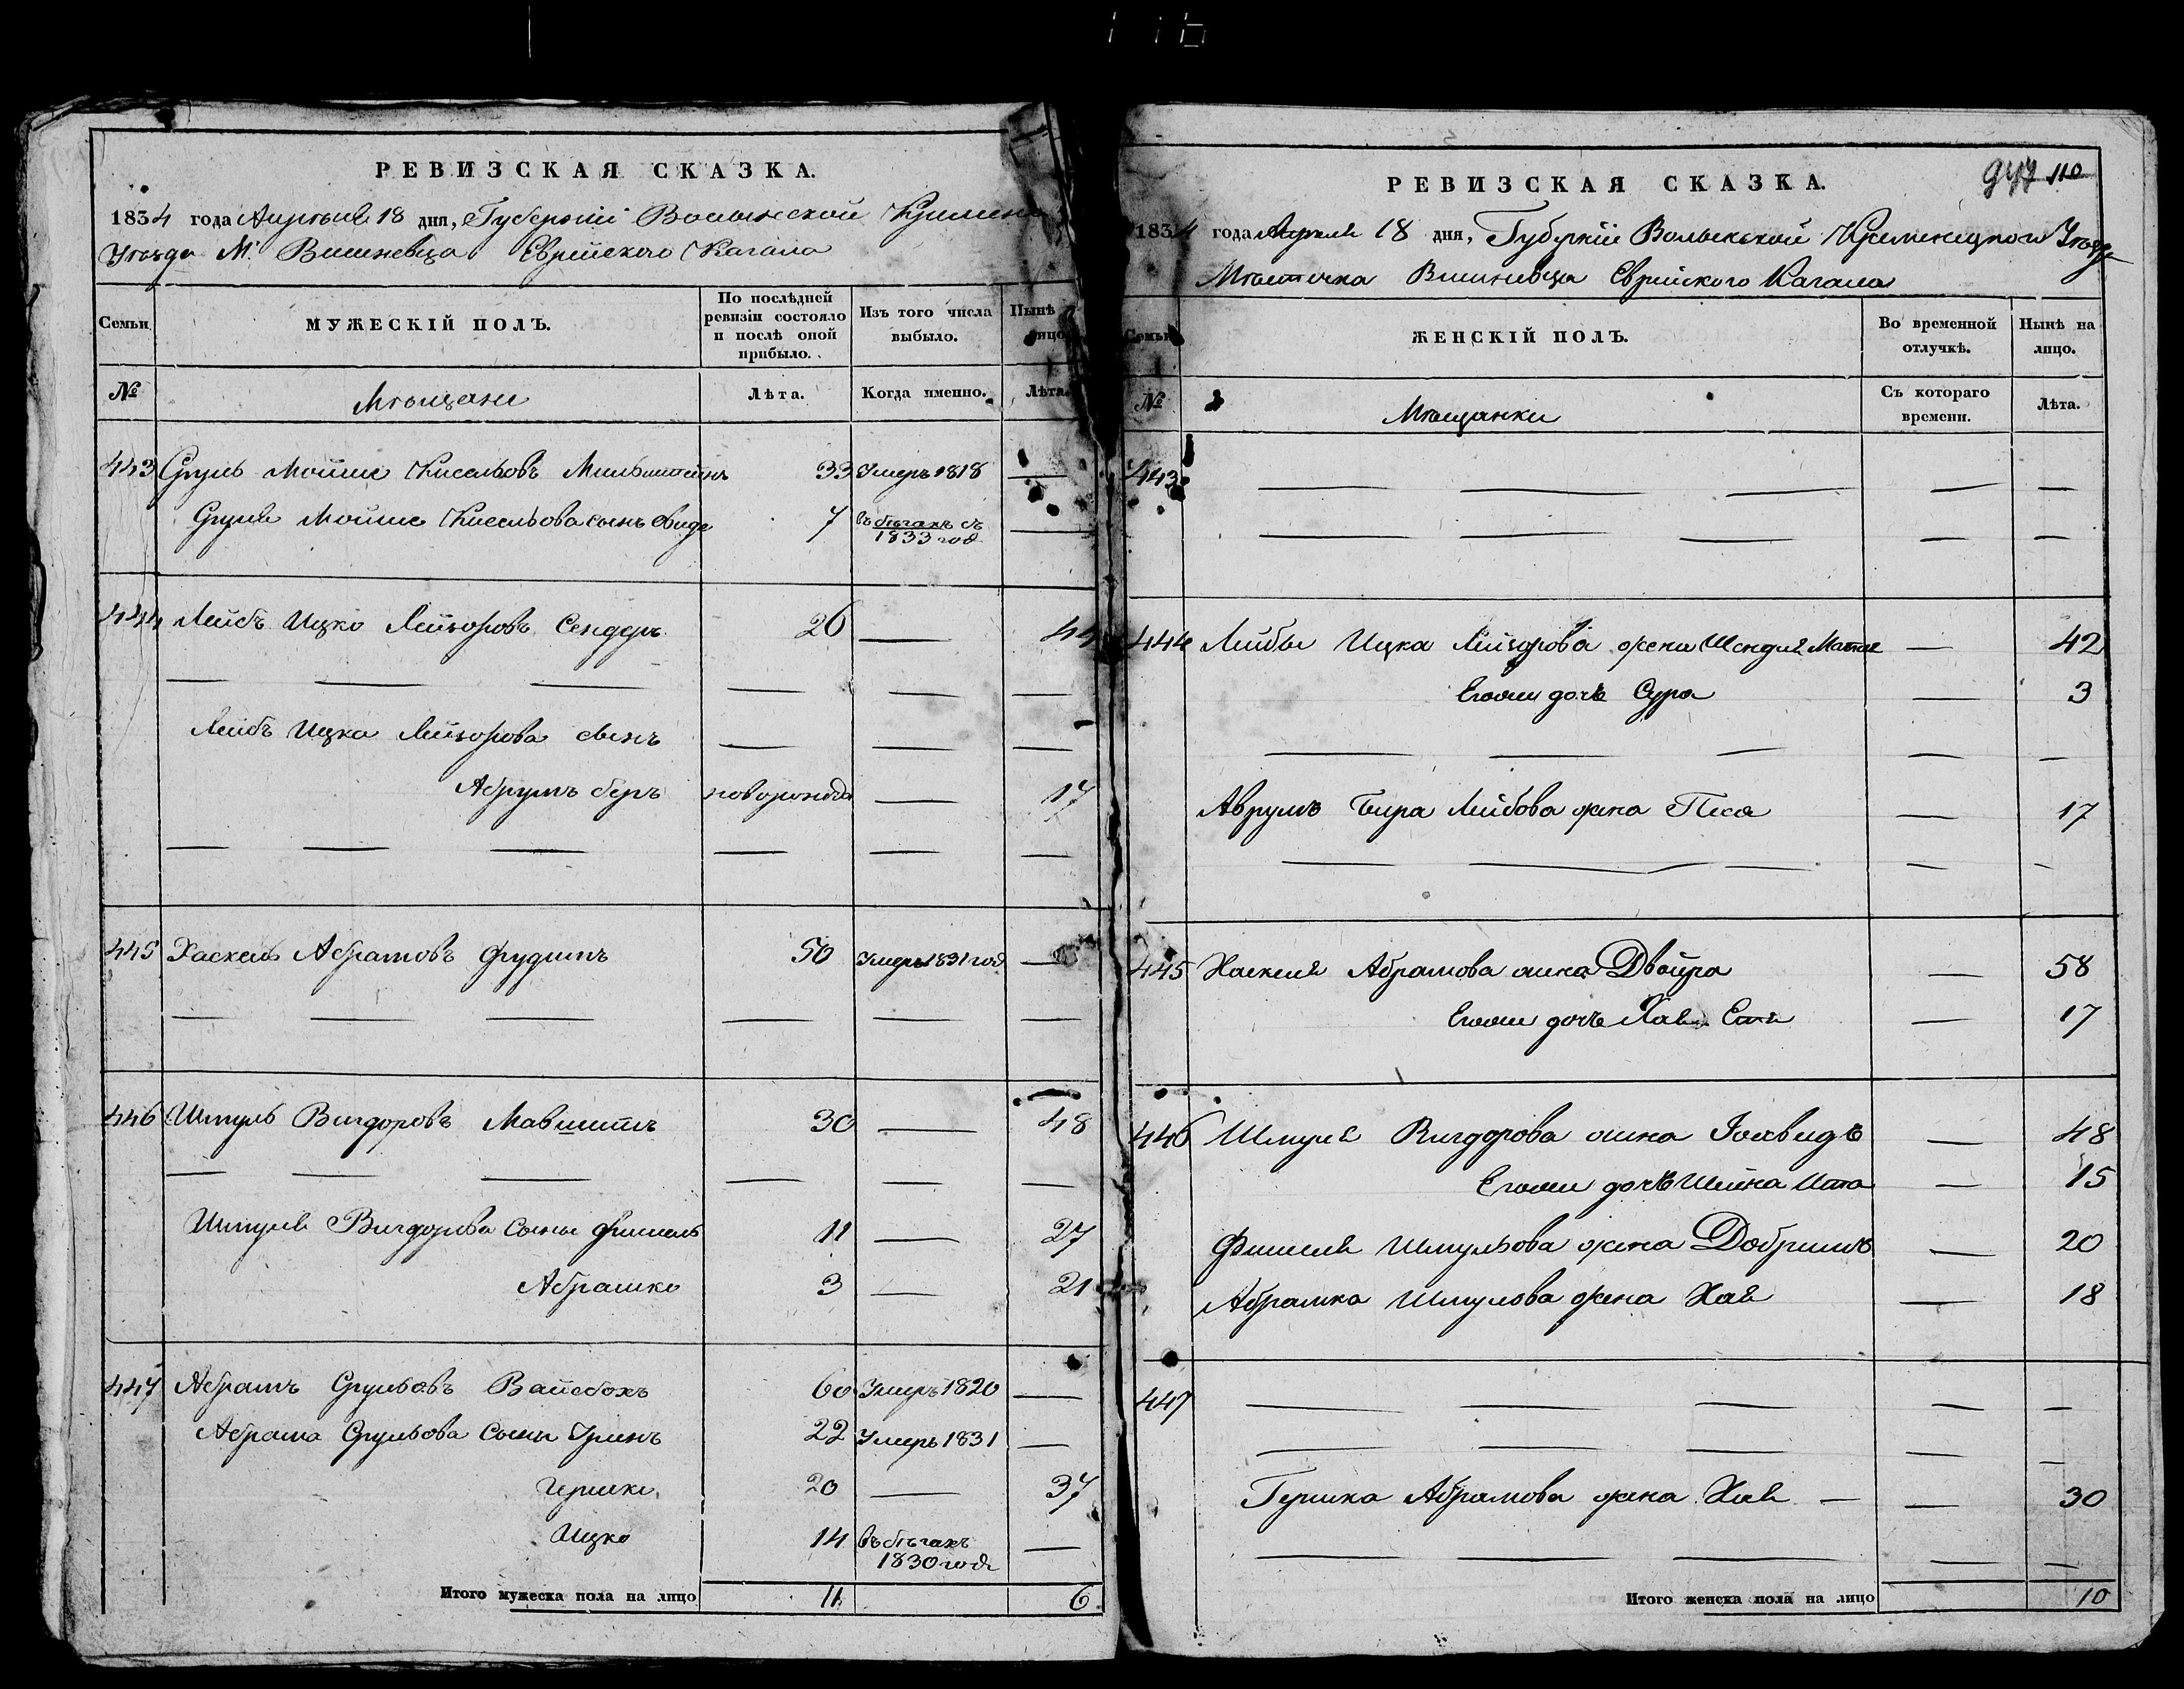 РЕВИЗСКАЯ СКАЗКА.
1834 года Апреля 18 дня, Губернии Волынской
Уезда М. Вишневца Еврейского Кагала
Семьи.
МУЖЕСКІЙ ПОЛЪ.
По послѣдней ревизіи состояло и послѣ оной прибыло.
Изъ того числа выбыло.
Нынѣ
№
Мѣщане
Лѣта.
Когда именно.
Лѣта.
443 Сруль Мойше Кисельовъ Мильштейнъ 33 Умеръ 1818 —
Сруля Мойше Кисельова сынъ 7 въ бѣгахъ съ —
1833 год
444 Лейбъ Ицко Лейзоровъ Сендеръ 26 — 44
— — — — — —
Лейбъ Ицка Лейзорова сынъ — — —
Абрумъ беръ новорожд — 17
— — — — — —
445 Хаскель Абрамовъ Фрудимъ 50 Умеръ 1831 год —
— — — — — —
446 Шмуль Вигдоровъ 30 — 48
— — — — — —
Шмуля Вигдорова сыны Фишель 11 — 27
Абрашко 3 — 21
447 Абрамъ Срульовъ Вайсбохъ 60 Умеръ 1820 —
Абрама Срульова сыны 22 Умеръ 1831 —
Гершко 20 — 37
Ицко 14 въ бѣгахъ —
1830 года
Итого мужеска пола на лицо 11 6
110
РЕВИЗСКАЯ СКАЗКА.
1834 года Апреля 18 дня, Губернии Волынской Кременецкого Уезда
Мѣстечка Вишневца Еврейского Кагала
Семьи
ЖЕНСКІЙ ПОЛЪ.
Во временной отлучкѣ.
Нынѣ на лицо.
№
Мѣщанки
Съ котораго времени.
Лѣта.
443 — — — — —
— — — — —
444 Лейбы Ицка Лейзорова жена Шендля — 42
Егоже дочь Сура — 3
— — — — —
Аврумъ Бера Лейбова жена Песя — 17
— — — — —
445 Хаскеля Абрамова жена Двойра — 58
Егоже дочь — 17
446 Шмуля Вигдорова жена Іохведъ — 48
Егоже дочь Шейна Ита — 15
Фишеля Шмульова жена Добришъ — 20
Абрашка Шмулова жена Хая — 18
447 — — — — —
— — — — —
Гершка Абрамова жена Хая — — 30
— — — — —
Итого женска пола на лицо 10